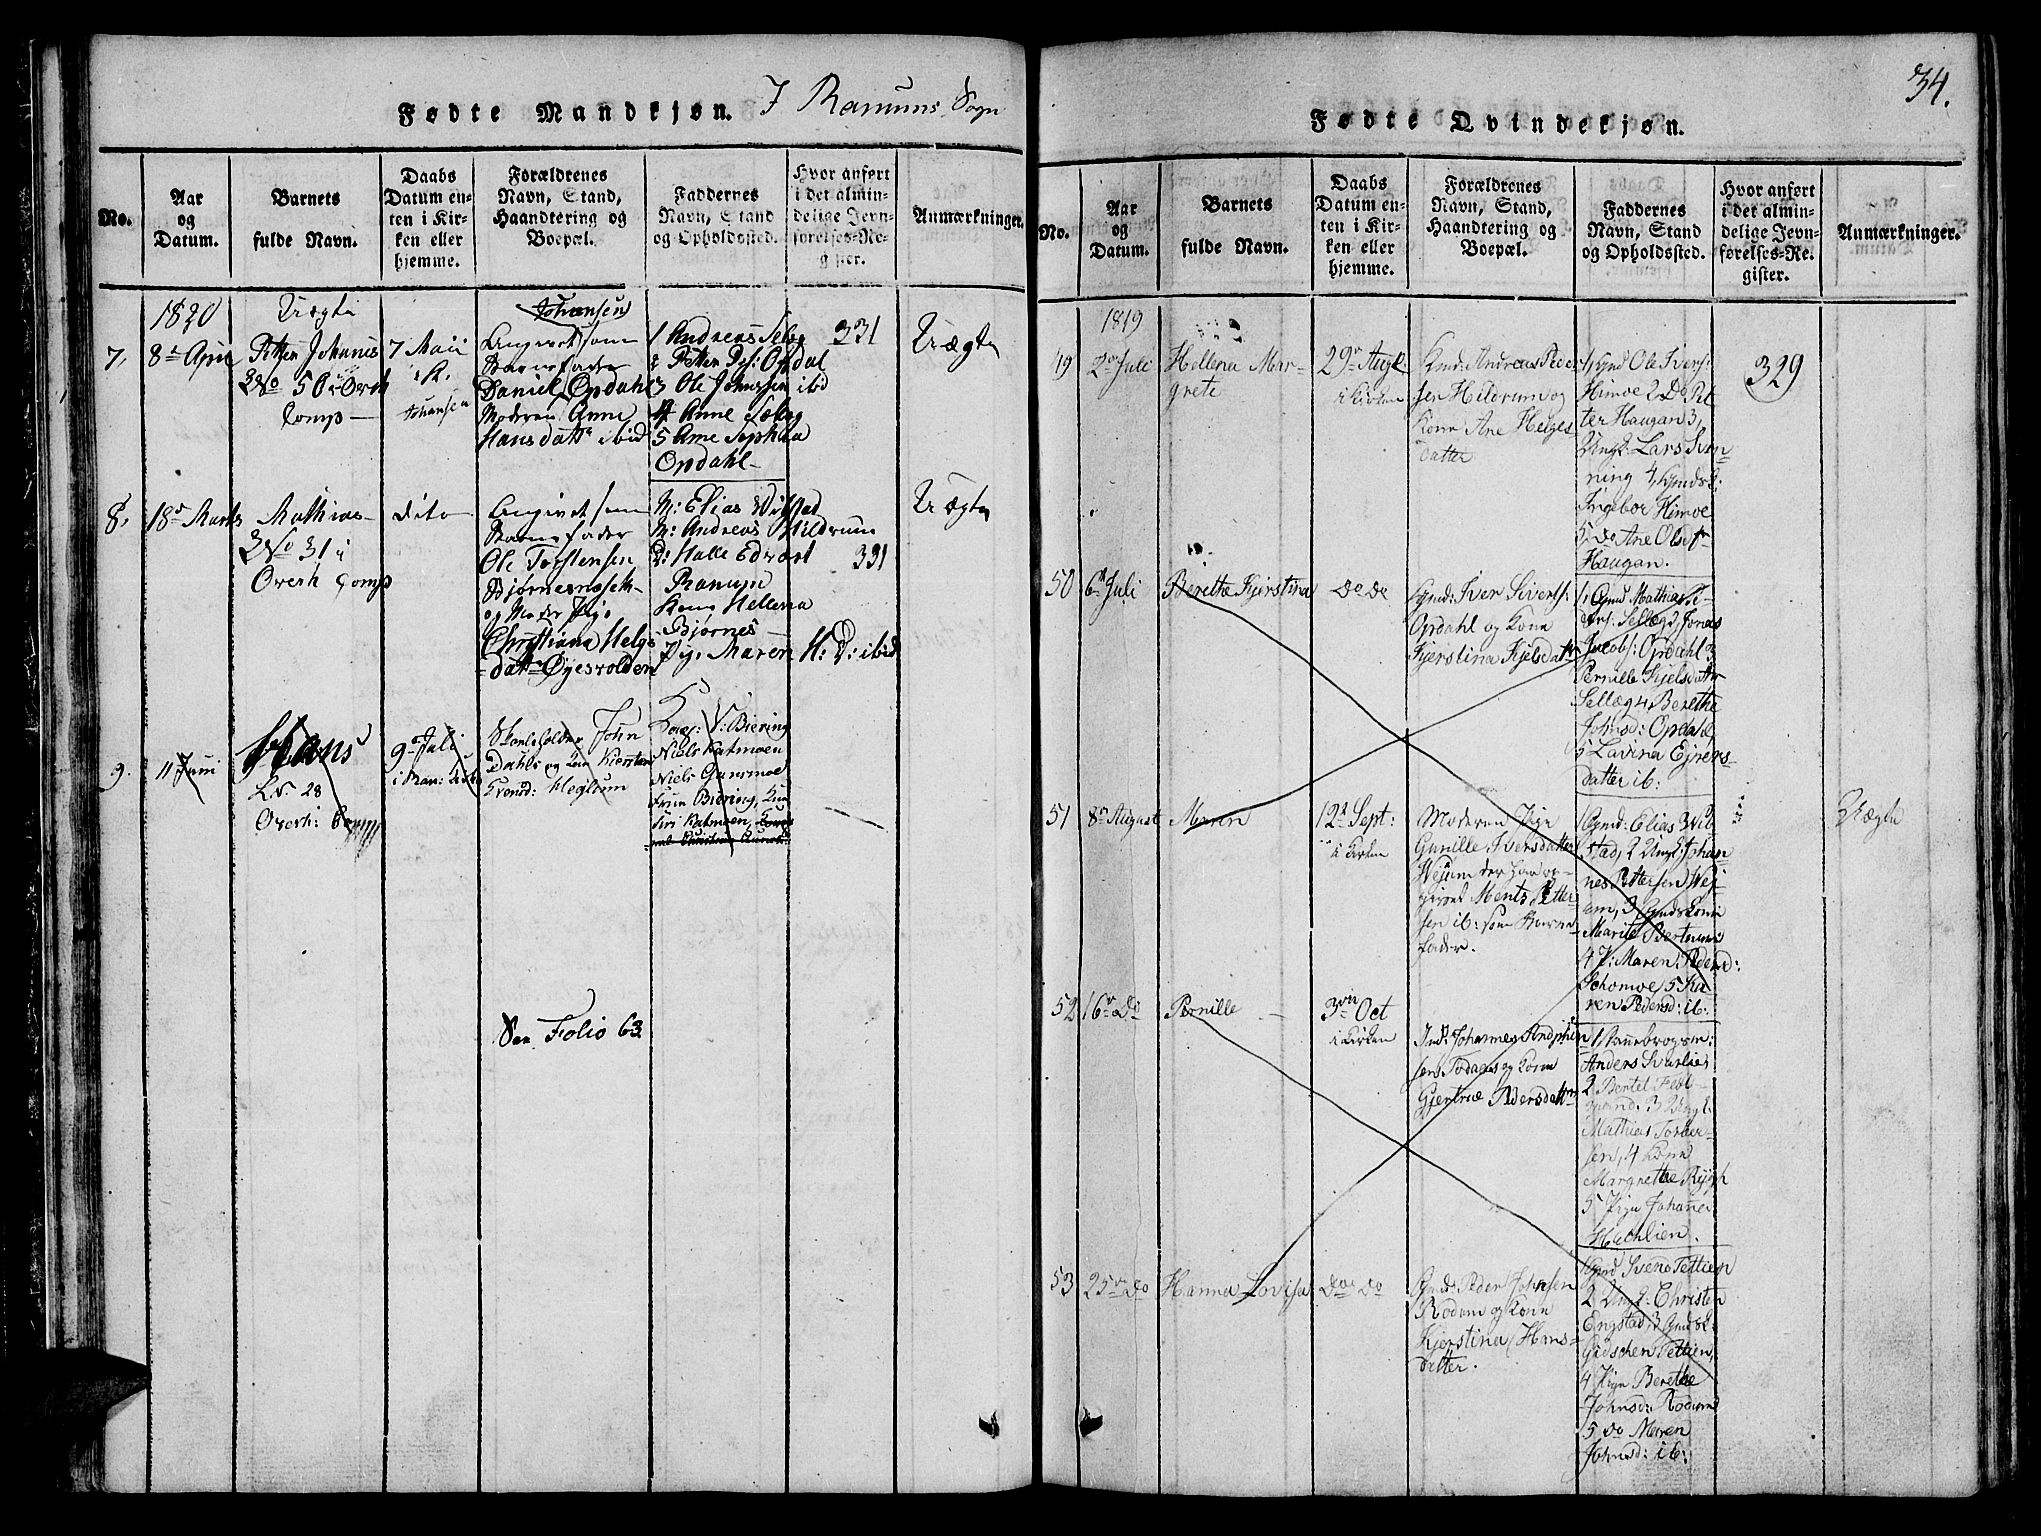 Fødte Mandkjøn. I Ranums Sogn
No.
Aar
og
Datum.
Barnets
fulde Navn.
Daabs
Datum en-
ten i Kir-
ken eller
hjemme.
Forældrenes
Navn, Stand,
Haandtering og
Boepæl.
Faddernes
Navn, Stand
og Opholdssted.
Hvor anført
i det almin-
delige Jevn-
førelses-Re-
gister.
Anmærkninger.
1820
7, 8de April
Uægte
Petter Johanes
No 50 i Overh
Comp
7 Maii
i K.
Johansen
Johansen
Angivet som
Barnefader
Daniel Opdahl
Moderen Anne
Hansdattr ibid
1 Andreas Selæg
2 Petter Opdal
3 Ole Johnssen ibid
4 Anne Selæg
5 Ane Sophia
Opdahl
331
Uægte
8, 18de Marts
Mathias
No 31 i
Overh Comp
dito
Angivet som
Barnefader
Ole Torstensen
Bjørnesnæsets
og Moder Pige
Christiana Helgs
datr Øyesvolden
M: Elias Wibstad
M: Andreas Hildrum
D: Halle Edvart
Ranum
Kone Hellena
Bjørnes
Pig. Maren H: D: ibid
331
Uægte
9. 11 Juni
Hans
No 28
Overh: Comp
9de Juli
i Ran: Kirke
Skoleholder John
Dahls og Kone Kiersten
Svensd: Heglum
Biering
Niels Katmoen
Niels Gansmoe
Frue Biering,
Siri Katmoen,
See Folio 63
34.
Fødte Qvindekjøn.
No.
Aar
og
Datum.
Barnets
fulde Navn.
Daabs
Datum en-
ten i Kir-
ken eller
hjemme.
Forældrenes
Navn, Stand,
Haandtering og
Boepæl.
Faddernes
Navn, Stand
og Opholdssted.
Hvor anført
i det almin-
delige Jevn-
førelses-Re-
gister.
Anmærkninger.
1819
49 2de Juli
Hellena Mar-
grete
29de Aug:
i Kirken
Gmd: Andreas Peder
sen Hildrum og
Kone Ane Helges
datter
1, Gmd Ole Ivers:
Himoe 2 Do Pet
ter Haugan 3,
Ungk: Lars Sven
ning 4, Gmdsk:
Ingebor Himoe
5, do Ane Olsdtr
Haugan.
329
50 6de Juli
Berethe Kjerstina
Do Do
Gmd: Iver Sivers:
Opdahl og Kone
Kjerstina Kjelsdatr
1, Gmd Mathias Pe-
ders: Sellæg 2 Jonas
Jacobs: Opdahl 3
Pernille Kjelsdatter
Sellæg 4 Berethe
Johnsd: Opdahl
5 Lavina Ejners-
datter ib:
51 8de August
Maren
12te Sept:
i Kirken
Moderen Pige
Gunille Iversdatter
Wejum der har an-
givet Ments Petter
sen ib: som Barne
fader.
1 Gmd: Elias Wib
stad, 2 Ungk: Johan
nes Pettersen Wej-
em, 3 Gmdskone
Marite Bertnem
4 P: Maren Pedersd:
Schomoe 5 Ka-
ren Pedersd: ib:
Uægte
52 16de Do
Pernille
3die Oct
i Kirken
Ind: Johannes Andphin
sens Fodagers og Kone
Gjertrue Pedersdattr
1, Dannebrogsm:
Anders Svarlies
2 Bentel Fedl-
3 Ungk:
Mathias Torber-
sen, 4 Kone
Margrethe Rygh
5 Pige Johane
Hachlien.
53 25de Do
Hanna Lovisa
Do Do
Gmd: Peder Johnsen
Rodum og Kone
Kjerstina Hans-
datter.
1 Gmd Svend Tettien
2 Ungk: Christen
Engstad, 3 Gmdsk:
Gidschen Tettien,
4 Pige Berethe
Johnsd: Rodum
5 Do Maren
Johnsd: ib: